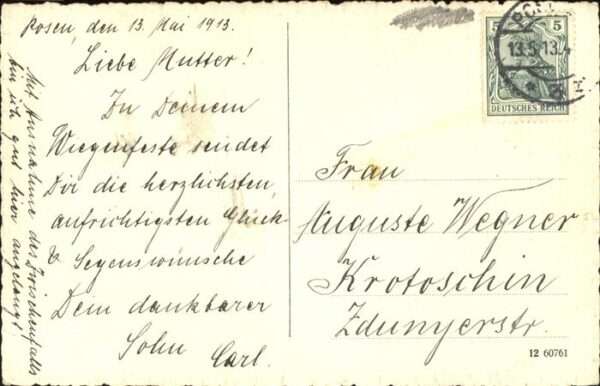 Posen, den 13. Mai 1913.
Liebe Mutter!
Zu Deinem
Wiegenfeste sendet
Dir die herzlichsten,
aufrichtigsten Glück-
& Segenswünsche
Dein dankbarer
Sohn Carl.
Mit Ausnahme des Zwischenfalls
bin ich gut hier angelangt.
5 5
13.5.13.4
DEUTSCHES REICH
Frau
Auguste Wegner
Krotoschin
Zdunyerstr.
12 60761